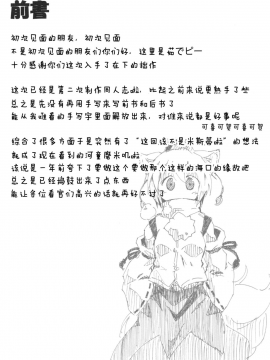 前書
初次见面的朋友，初次见面
不是初次见面的朋友们你们好，这里是猫でビー
十分感谢你们这次入手了在下的拙作
这次已经是第二次制作同人志了，比起之前来说更熟手了些
总之是先没有再用手写来写前书和后书了
能从我难看的手写字里面解放出来，对谁来说都是好事呢
可喜可贺可喜可贺
综合了很多方面于是突然有了“这回该不是米斯蒂啦”的想法
就成了现在看到的河童磨米叽啦
该说是一年前夸下了要做这个要做那个这样的海口的缘故吧
总之是已经捣鼓出来了点东西
能让各位看官们高兴的话就再好不过了